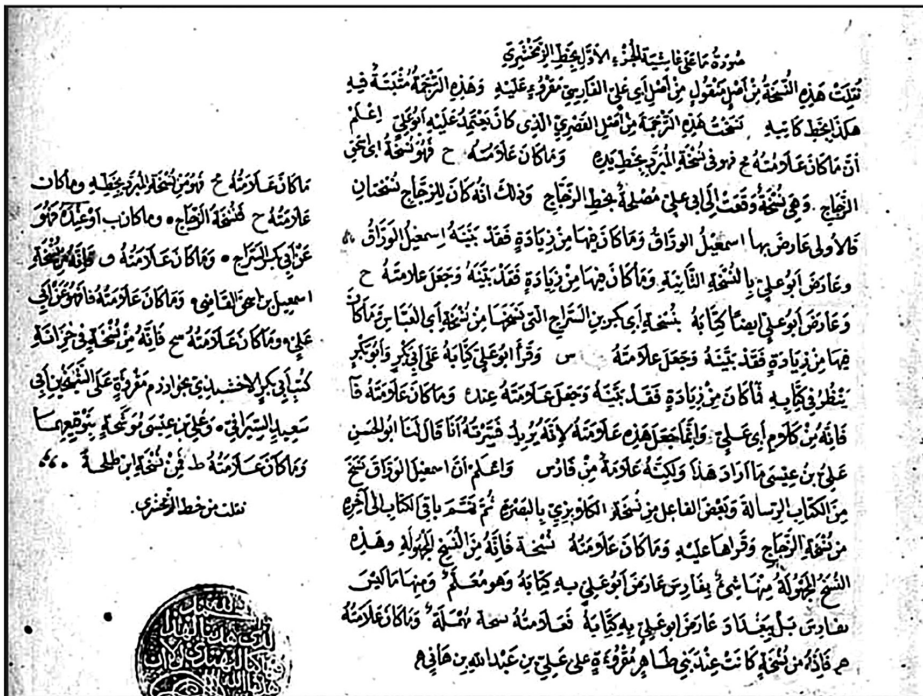 صورة ما على حاشية الجزء الأول بخط الزمخشري
نقلت هذه النسخة من أصل منقول من أصل أبي علي الفارسي مقروء عليه وهذه الترجمة مثبتة فيه
هكذا بخط كاتبه نسخت هذه الترجمة من أصل القصري الذي كان يعتمد عليه أبو علي اعلم
أن ما كان علامته فهو في نسخة المبرد بخط يده وما كان علامته ح فهو نسخة أبي إسحق
الزجاج وهي نسخة وقعت إلى أبي علي مصلحة بخط الزجاج وذلك أنه كان للزجاج نسختان
فالأولى عارض بها اسمعيل الوراق وما كان فيها من زيادة فقد بينه اسمعيل الوراق
وعارض أبو علي بالنسخة الثانية وما كان فيها من زيادة فقد بينه وجعل علامته ح
وعارض أبو علي ايضا كتابه بنسخة أبي بكر بن السراج التي نسخها من نسخة أبي العباس فما كان
فيها من زيادة فقد بينه وجعل علامته س وقرأ أبو علي كتابه على أبي بكر وأبو بكر
ينظر في كتابه فما كان من زيادة فقد بينه وجعل علامته عنده وما كان علامته فا
فإنه من كلام أبي علي وإنما جعل هذه علامته لأنه يريد فسرته أنا قال لنا أبو الحسن
علي بن عيسى ما أراد هذا ولكنه علامة من فارس واعلم أن اسمعيل الوراق نسخ
من الكتاب الرسالة وبعض الفاعل من نسخة الكلابزي بالبصرة ثم تمم باقي الكتاب إلى آخره
من نسخة الزجاج وقرأها عليه وما كان علامته نسخة فإنه من النسخ المجهولة وهذه
النسخ المجهولة منها شيء بفارس عارض أبو علي به كتابه وهو معلم ومنها ما ليس
بفارس بل ببغداد عارض أبو علي به كتابه فعلامته نسخة مهملة وما كان علامته
ه فإنه من نسخة كانت عند بني طاهر مقروءة على علي بن عبد الله بن هاني
ما كان علامته فهو من نسخة المبرد بخطه وما كان
علامته ح فنسخة الزجاج وما كان ب أو عنده فهو
عن أبي بكر السراج وما كان علامته ق فإنه من نسخة
اسمعيل بن إسحق القاضي وما كان علامته فا فهو عن أبي
علي وما كان علامته فإنه من نسخة في خزانة
كتب أبي بكر الإخشيذ في بخوارزم مقروءة على الشيخين أبي
سعيد السيرافي وعلي بن عيسى موشحة بتوقيعهما
وما كان علامته ط فمن نسخة ابن طلحة
نقلت من خط الزمخشري